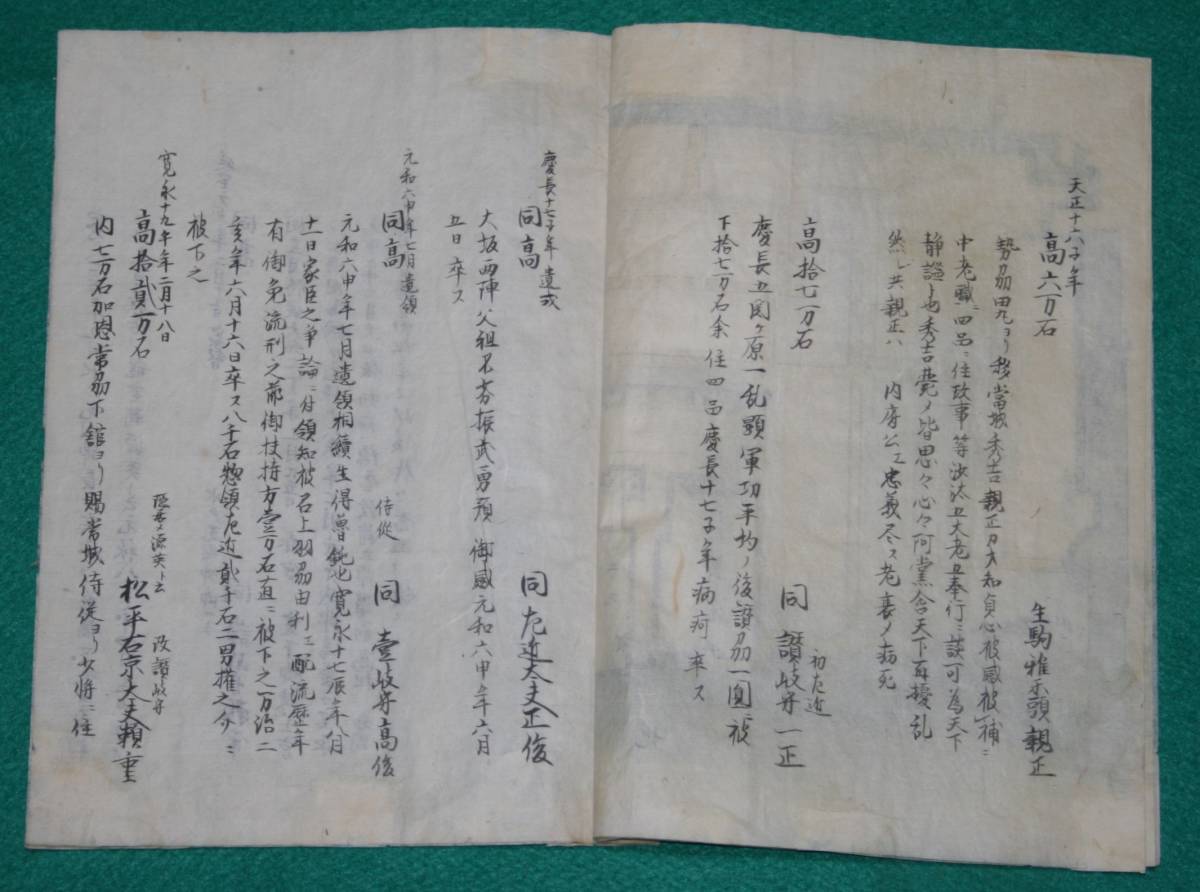 天正十八子年
高六万石 生駒雅楽頭親正
勢刕田丸ヨリ移當城秀吉親正乃才知貞心被感被補ニ
中老職ニ四品ニ任政事等沙汰五大老五奉行ニ談可為天下
静謐ト也秀吉薨ノ皆思々心々阿黨含天下再擾乱
然レ共親正ハ 内府公エ忠義尽ス老衰ノ病死
高拾七万石 初左近 同 讃岐守一正
慶長五関ヶ原一乱顕軍功平均ノ後讃刕一圓被
下拾七万石余任四品慶長十七子年病痾卒ス
慶長十七子年遺
同高 同左近大夫正俊
大坂両陣父祖不劣振武勇預御感元和六申年六月
五日卒ス
元和六申年七月遺領
同高 侍従 同 壹岐守高俊
元和六申年七月遺領相續生得魯鈍也寛永十七辰年八月
十一日家臣之争論ニ付領知被召上羽刕由利エ配流歴年
有御免流刑之節御扶持方壹万石直ニ被下之万治二
亥年六月十六日卒ス八千石惣領左近貳千石二男権之介ニ
被下之
寛永十九年年二月十八日
高拾貳万石 源英ト云 改讃岐守 松平右京大夫頼重
内七万石加恩常刕下舘ヨリ賜當城侍従ヨリ少将ニ任